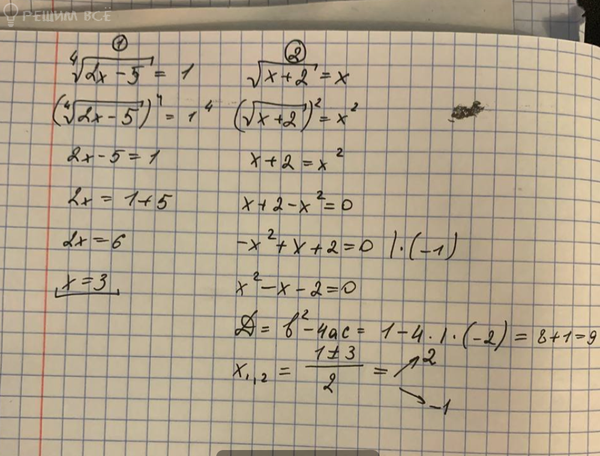 РЕШИМ ВСЁ
1
⁴√(2x-5) = 1
(⁴√(2x-5))⁴ = 1⁴
2x-5=1
2x = 1+5
2x=6
x=3
2
√(x+2) = x
(√(x+2))² = x²
x+2=x²
x+2-x²=0
-x²+x+2=0 |·(-1)
x²-x-2=0
D = b²-4ac = 1-4·1·(-2) = 8+1=9
x₁,₂ = (1±3)/2 = ↗2
↘-1